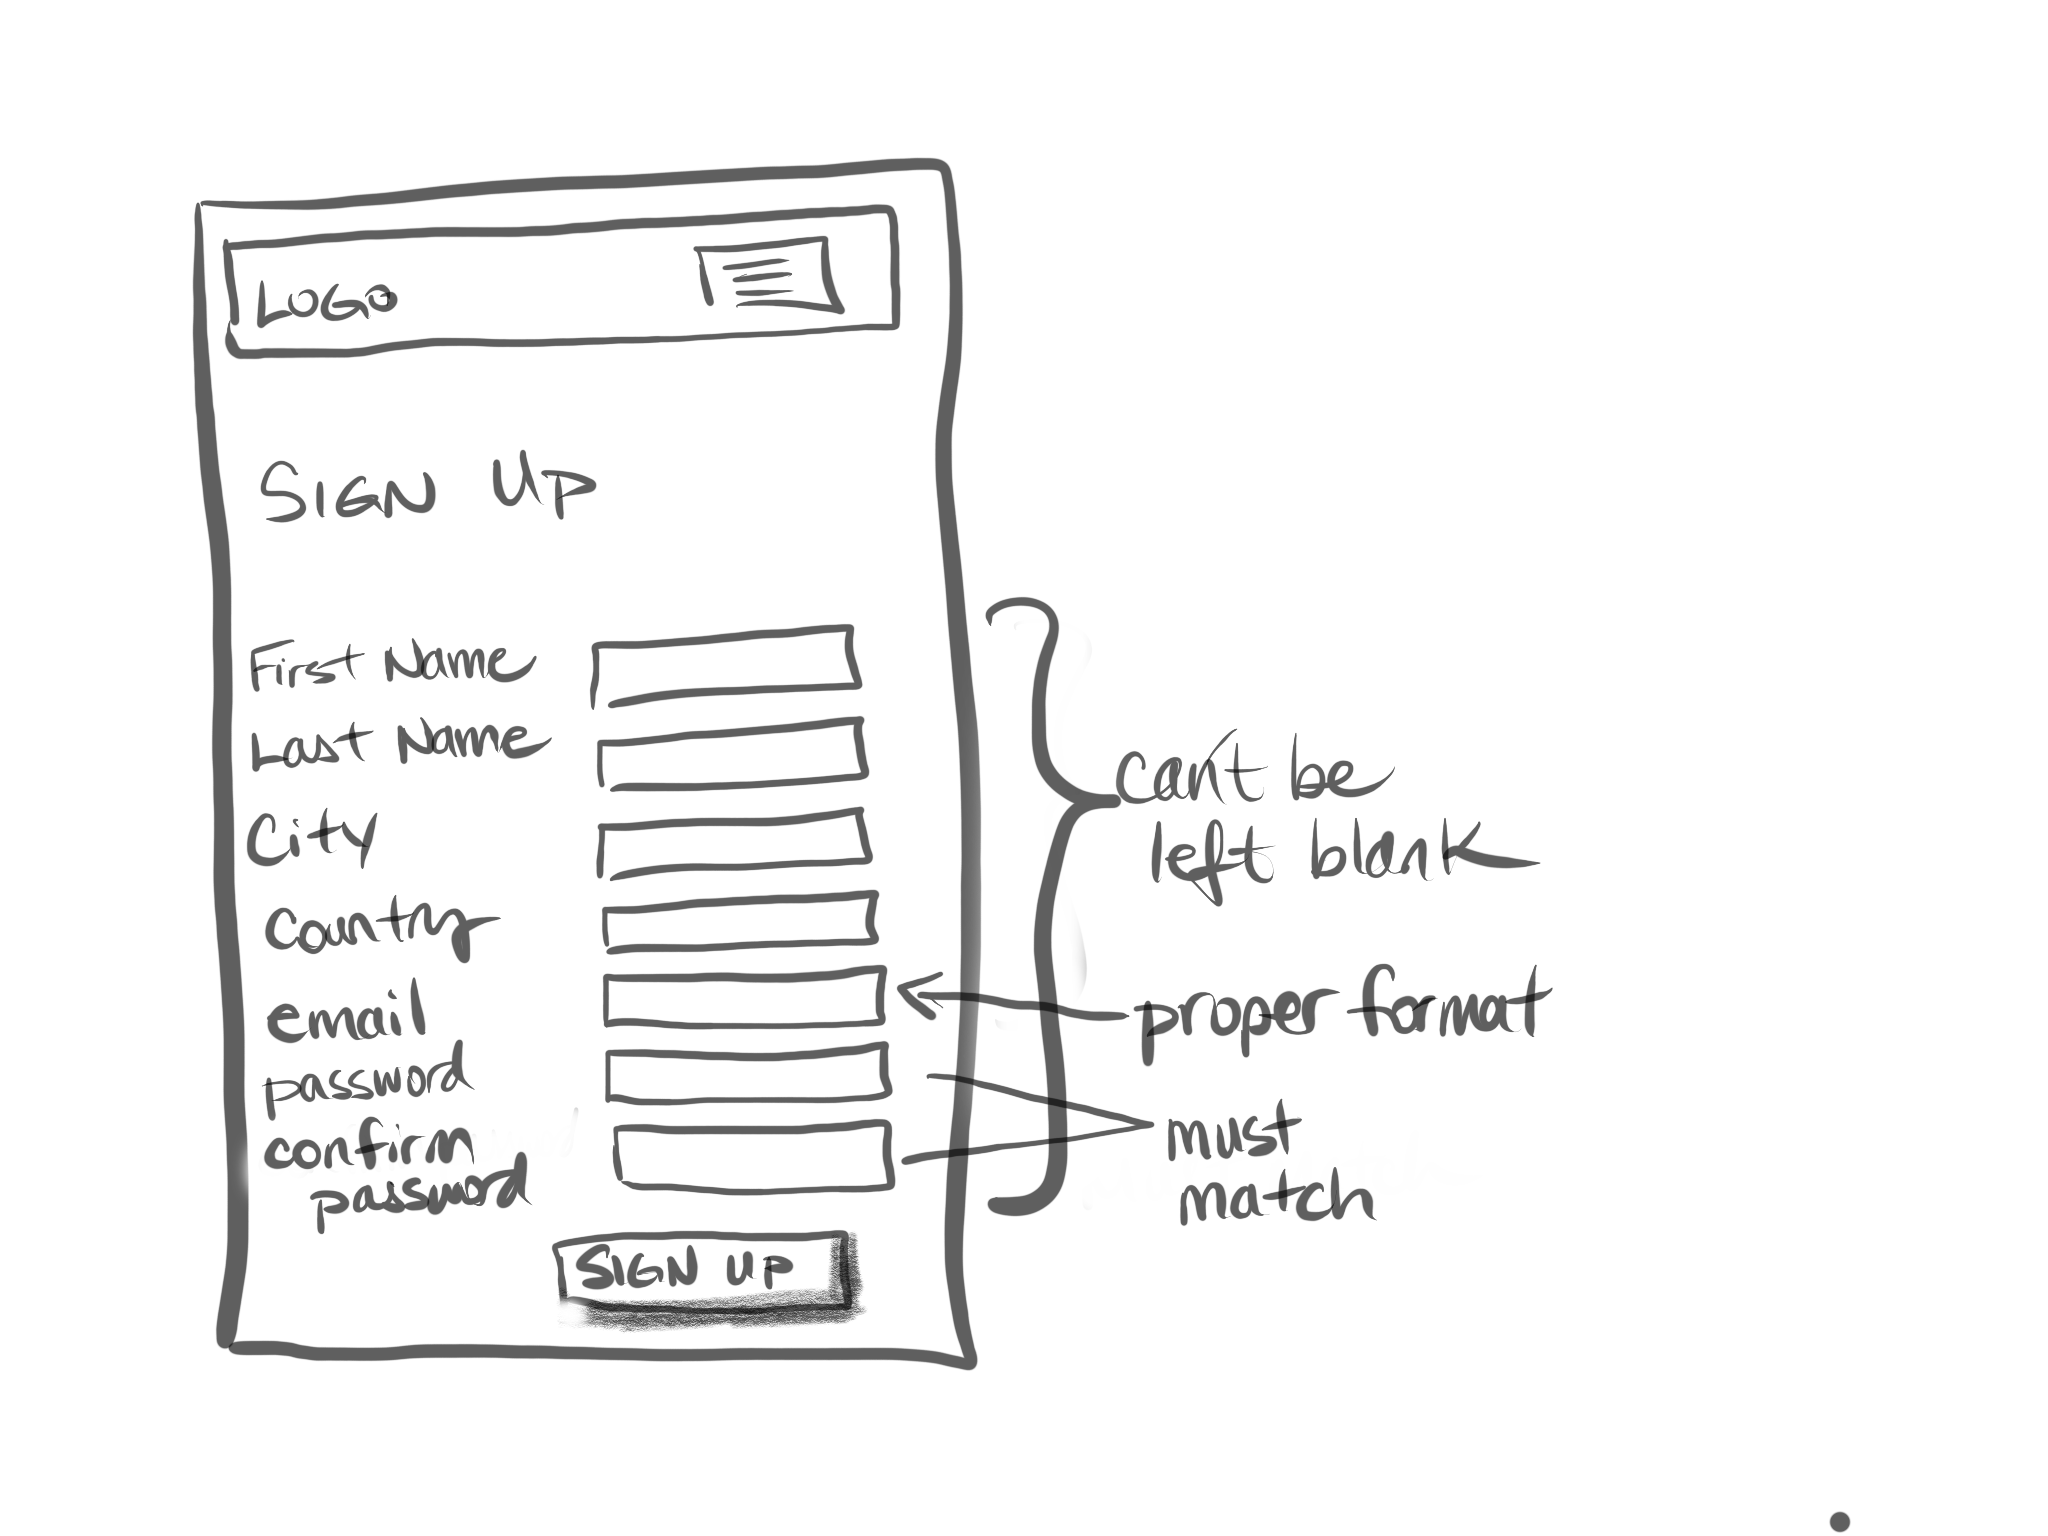 LOGO
SIGN UP
First Name
Last Name
City
Country
email
password
confirm
password
SIGN UP
can't be
left blank
proper format
must
match